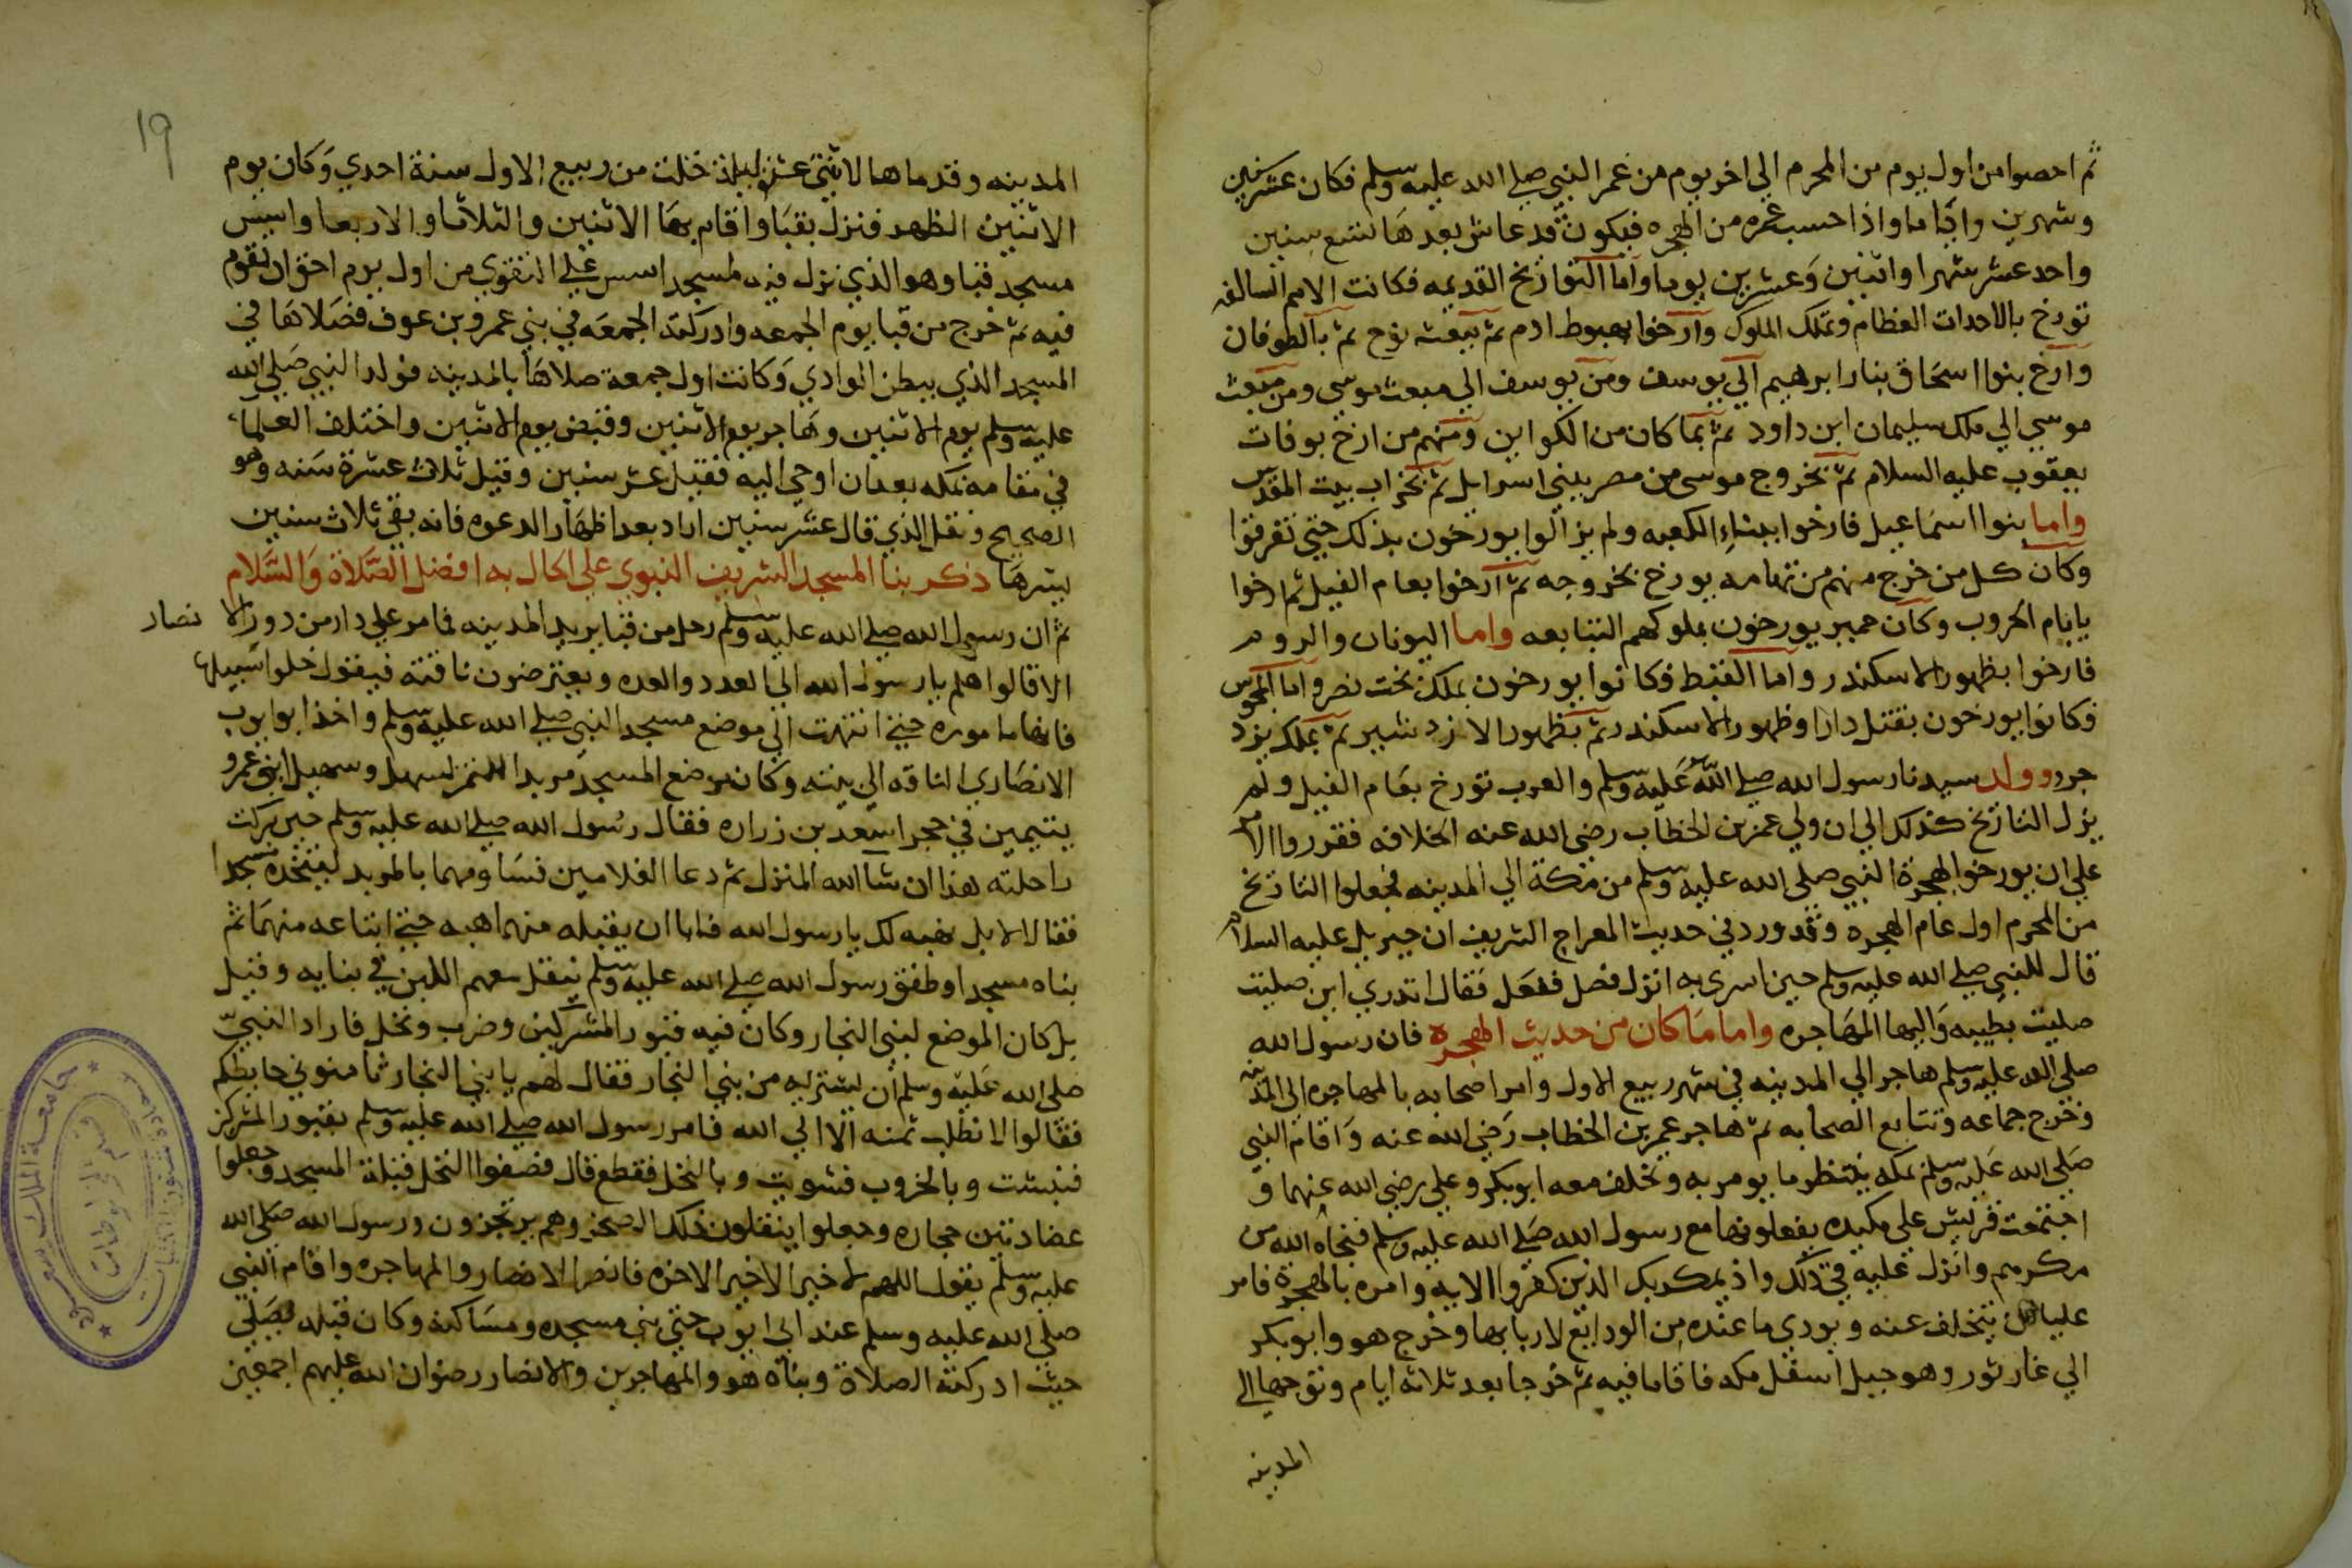 ثم احصوا من اول يوم من المحرم الي اخر يوم من عمر النبي صلي الله عليه وسلم فكان عشر سنين
وشهرين واياما واذا احسب عمره من الهجره فيكون قد عاش بعدها تسع سنين
واحد عشر شهرا واثنين وعشرين يوما واما التواريخ القديمه فكانت الامم السالفه
تورخ بالاحداث العظام وتملك الملوك وارخوا بهبوط ادم ثم بمبعث نوح ثم بالطوفان
وارخ بنوا اسحاق بنار ابرهيم الي يوسف ومن يوسف الي مبعث موسي ومن مبعث
موسي الي ملك سليمان ابن داود ثم بما كان من الكواين ومنهم من ارخ بوفات
يعقوب عليه السلام ثم بخروج موسي من مصر ببني اسرايل ثم بخراب بيت المقدس
واما بنوا اسماعيل فارخوا ببناء الكعبه ولم يزالوا يورخون بذلك حتي تفرقوا
وكان كل من خرج منهم من تهامه يورخ بخروجه ثم ارخوا بعام الفيل ثم ارخوا
بايام الحروب وكان حمير يورخون بملوكهم التتابعه واما اليونان والروم
فارخوا بظهور الاسكندر واما القبط فكانوا يورخون بملك بخت نصر واما المجوس
فكانوا يورخون بقتل دارا وظهور الاسكندر ثم بظهور الازدشير ثم بملك يزد
جرد وولد سيدنا رسول الله صلي الله عليه وسلم والعرب تورخ بعام الفيل ولم
يزل التاريخ كذلك الي ان ولي عمر بن الخطاب رضي الله عنه الخلافه فقرروا الامر
علي ان يورخوا بهجرة النبي صلي الله عليه وسلم من مكة الي المدينه فجعلوا التاريخ
من المحرم اول عام الهجره وقد ورد في حديث المعراج الشريف ان جبريل عليه السلام
قال للنبي صلي الله عليه وسلم حين اسري به انزل فصل ففعل فقال اتدري اين صليت
صليت بطيبه واليها المهاجره واما ما كان من حديث الهجره فان رسول الله
صلي الله عليه وسلم هاجر الي المدينه في شهر ربيع الاول وامر اصحابه بالمهاجره الي المدينه
فخرج جماعه وتتابع الصحابه ثم هاجر عمر بن الخطاب رضي الله عنه واقام النبي
صلي الله عليه وسلم بمكه ينتظر ما يومر به وتخلف معه ابوبكر وعلي رضي الله عنهما و
اجتمعت قريش علي مكيده يفعلونها مع رسول الله صلي الله عليه وسلم فنجاه الله من
مكرهم وانزل عليه في ذلك واذ يمكر بك الذين كفروا الايه وامره بالهجرة فامر
عليا ان يتخلف عنه ويودي ما عنده من الودايع لاربابها وخرج هو وابوبكر
الي غار ثور وهو جبل اسفل مكه فاقاما فيه ثم خرجا بعد ثلاثة ايام وتوجها الي
المدينه
١٩
المدينه وقدماها لاثنتي عشرة ليلة خلت من ربيع الاول سنة احدي وكان يوم
الاثنين الظهر فنزل بقبا واقام بها الاثنين والثلاثا والاربعا واسس
مسجد قبا وهو الذي نزل فيه لمسجد اسس علي التقوي من اول يوم احق ان تقوم
فيه ثم خرج من قبا يوم الجمعه وادركته الجمعه في بني عمرو بن عوف فصلاها في
المسجد الذي ببطن الوادي وكانت اول جمعة صلاها بالمدينه فولد النبي صلي الله
عليه وسلم يوم الاثنين وهاجر يوم الاثنين وقبض يوم الاثنين واختلف العلماء
في مقامه بمكه بعد ان اوحي اليه فقيل عشر سنين وقيل ثلاث عشرة سنه وهو
الصحيح ونقل الذي قال عشر سنين اراد بعد اظهار الدعوه فانه بقي ثلاث سنين
يسرها ذكر بنا المسجد الشريف النبوي علي الحال به افضل الصلاة والسلام
ثم ان رسول الله صلي الله عليه وسلم رحل من قبا يريد المدينه فما مر علي دار من دور الا نصار
الا قالوا هلم يا رسول الله الي العدد والعده ويعترضون ناقته فيقول خلوا سبيلها
فانها ماموره حتي انتهت الي موضع مسجد النبي صلي الله عليه وسلم واخذ ابو ايوب
الانصاري الناقه الي بيته وكان موضع المسجد مربدا للتمر لسهل وسهيل ابني عمرو
يتيمين في حجر اسعد بن زراره فقال رسول الله صلي الله عليه وسلم حين بركت
راحلته هذا ان شا الله المنزل ثم دعا الغلامين فساومهما بالمربد ليتخذه مسجدا
فقالا لا بل نهبه لك يا رسول الله فابا ان يقبله منهما هبه حتي ابتاعه منهما ثم
بناه مسجدا وطفق رسول الله صلي الله عليه وسلم ينقل معهم اللبن في بنايه وقيل
بل كان الموضع لبني النجار وكان فيه قبور المشركين وخرب ونخل فاراد النبي
صلي الله عليه وسلم ان يشتريه من بني النجار فقال لهم يا بني النجار ثامنوني حايطكم
فقالوا لا نطلب ثمنه الا الي الله فامر رسول الله صلي الله عليه وسلم بقبور المشركين
فنبشت وبالخروب فسويت وبالنخل فقطع قال فصفوا النخل قبلة المسجد وجعلوا
عضادتين حجاره وجعلوا ينقلون ذلك الصخر وهم يرتجزون ورسول الله صلي الله
عليه وسلم يقول اللهم لا خير الا خير الاخره فانصر الانصار والمهاجره واقام النبي
صلي الله عليه وسلم عند ابي ايوب حتي بني مسجده ومساكنه وكان قبله يصلي
حيث ادركته الصلاة وبناه هو والمهاجرين والانصار رضوان الله عليهم اجمعين